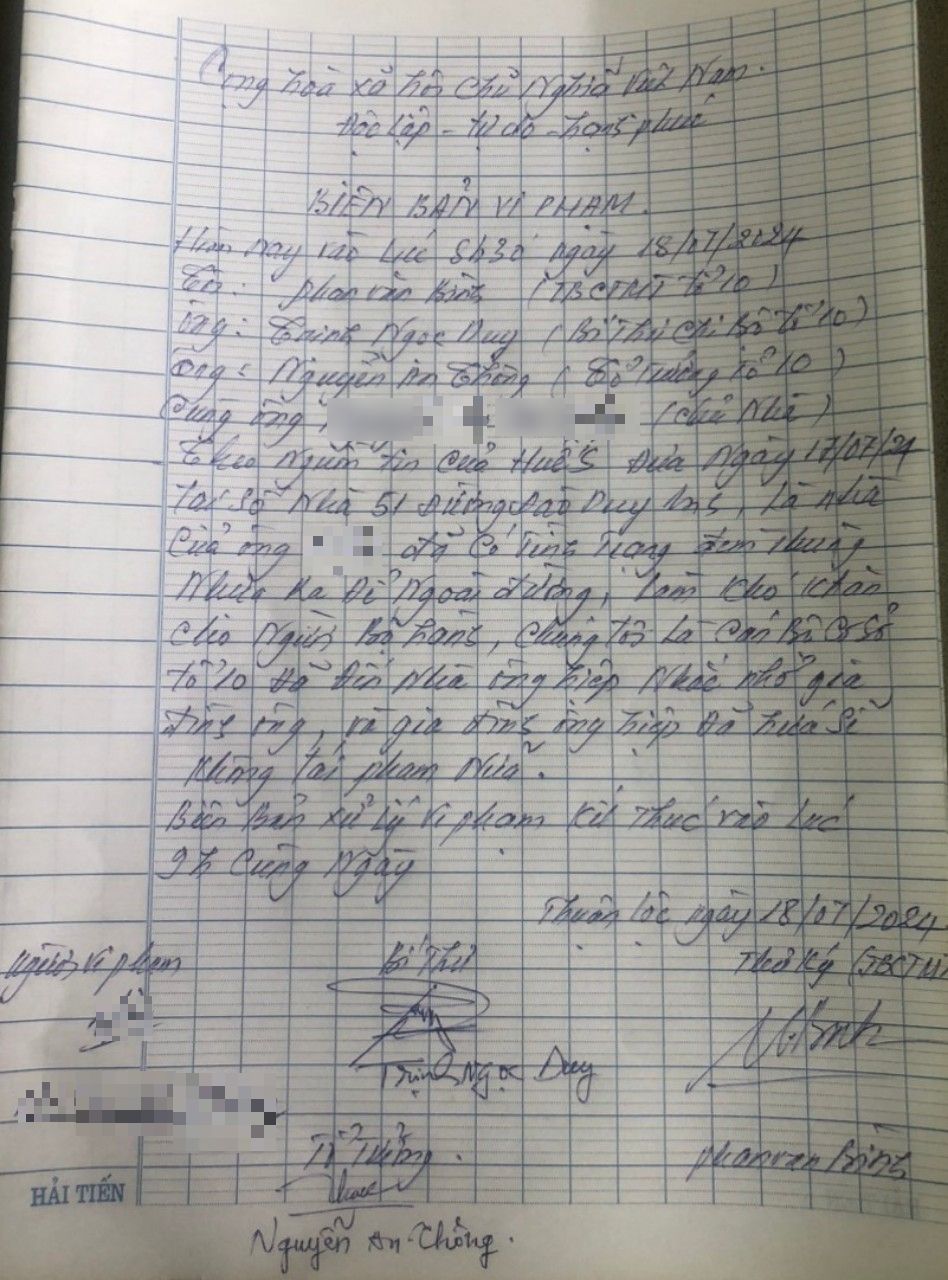 Cộng hoà xã hội Chủ Nghĩa Việt Nam.
Độc lập - tự do - hạnh phúc
BIÊN BẢN VI PHẠM.
Hôm nay vào lúc 8h30 ngày 18/07/2024
Phan Văn Bình (TBCTMT tổ 10)
Ông: Trịnh Ngọc Duy (Bí Thư Chi Bộ tổ 10)
Ông: Nguyễn An Thông (Tổ Trưởng tổ 10)
Cùng ông (Chủ Nhà)
Theo Nguồn tin của HuếS Đưa Ngày 17/07/24
Tại Số Nhà 51 Đường Đào Duy Anh, là nhà
Của ông đã Có Tình Trạng đem thùng
Nhựa Ra Để Ngoài đường, Làm Khó Khăn
Cho Người Bộ hành, Chúng Tôi Là Cán Bộ Cơ Sở
tổ 10 Đã Đến Nhà ông hiệp Nhắc nhở gia
đình ông, và gia đình ông hiệp Đã hứa Sẽ
Không tái phạm Nữa.
Biên Bản xử lý vi phạm Kết Thúc vào Lúc
9h Cùng Ngày
Thuận lộc ngày 18/07/2024
Người vi phạm Bí Thư Thư Ký (TBCTMT
Trịnh Ngọc Duy
Tổ Trưởng. phan văn Bình
HẢI TIẾN
Nguyễn An Thông.